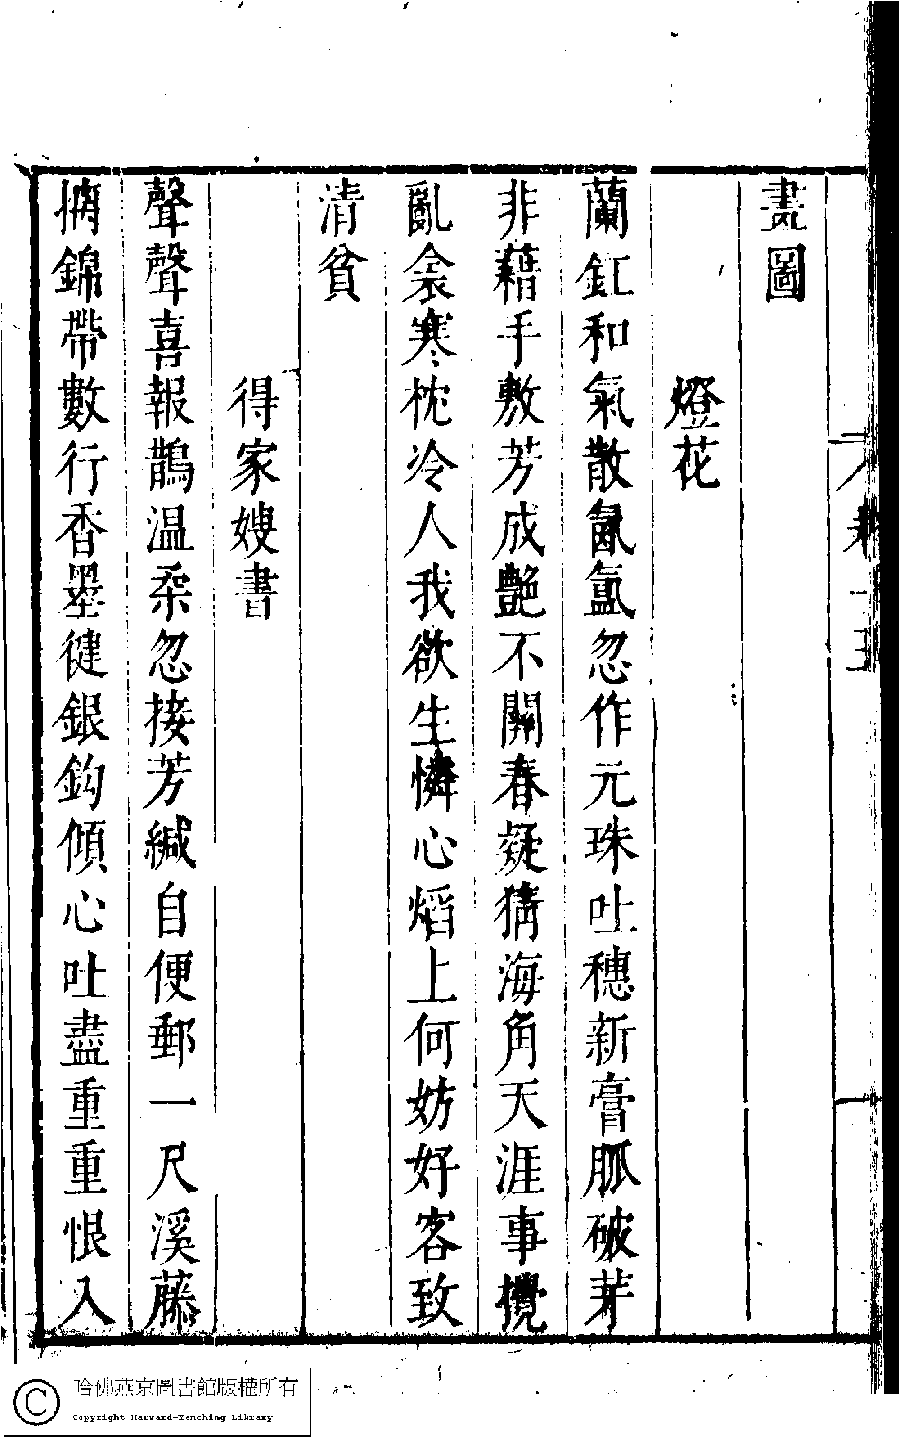 畫圖
燈花
蘭釭和氣散氤氳忽作元珠吐穗新膏脈破芽
非藉手敷芳成艷不關春疑猜海角天涯事攪
亂衾寒枕冷人我欲生憐心熖上何妨好客致
清貧
得家嫂書
聲聲喜報鵲温柔忽接芳緘自便郵一尺溪藤
摛錦帶數行香墨健銀鈎傾心吐盡重重恨入
哈佛燕京圖書館版權所有
Copyright Harvard-Yenching Library